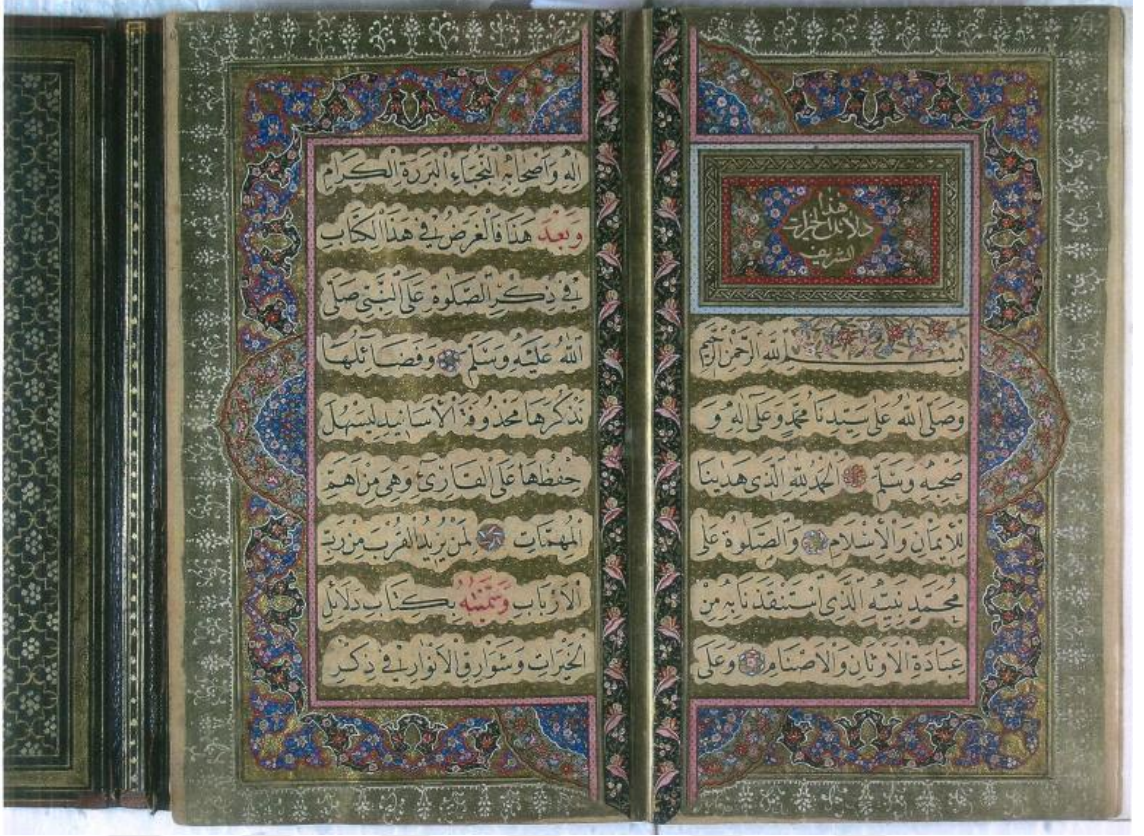 هذا
دلائل الخيرات
الشريف
بسم الله الرحمن الرحيم
وصلى الله على سيدنا محمد وعلى اله و
صحبه وسلم الحمد لله الذى هدينا
للايمان والاسلام والصلوة على
محمد نبيه الذى استنقذنا به من
عبادة الاوثان والاصنام وعلى
اله واصحابه النجباء البررة الكرام
وبعد هذا فالغرض فى هذا الكتاب
فى ذكر الصلوة على النبى صلى
الله عليه وسلم وفضائلها
نذكرها محذوفة الاسانيد ليسهل
حفظها على القارئ وهى من اهم
المهمات لمن يريد القرب من رب
الارباب وسميته بكتاب دلائل
الخيرات وشوارق الانوار فى ذكر